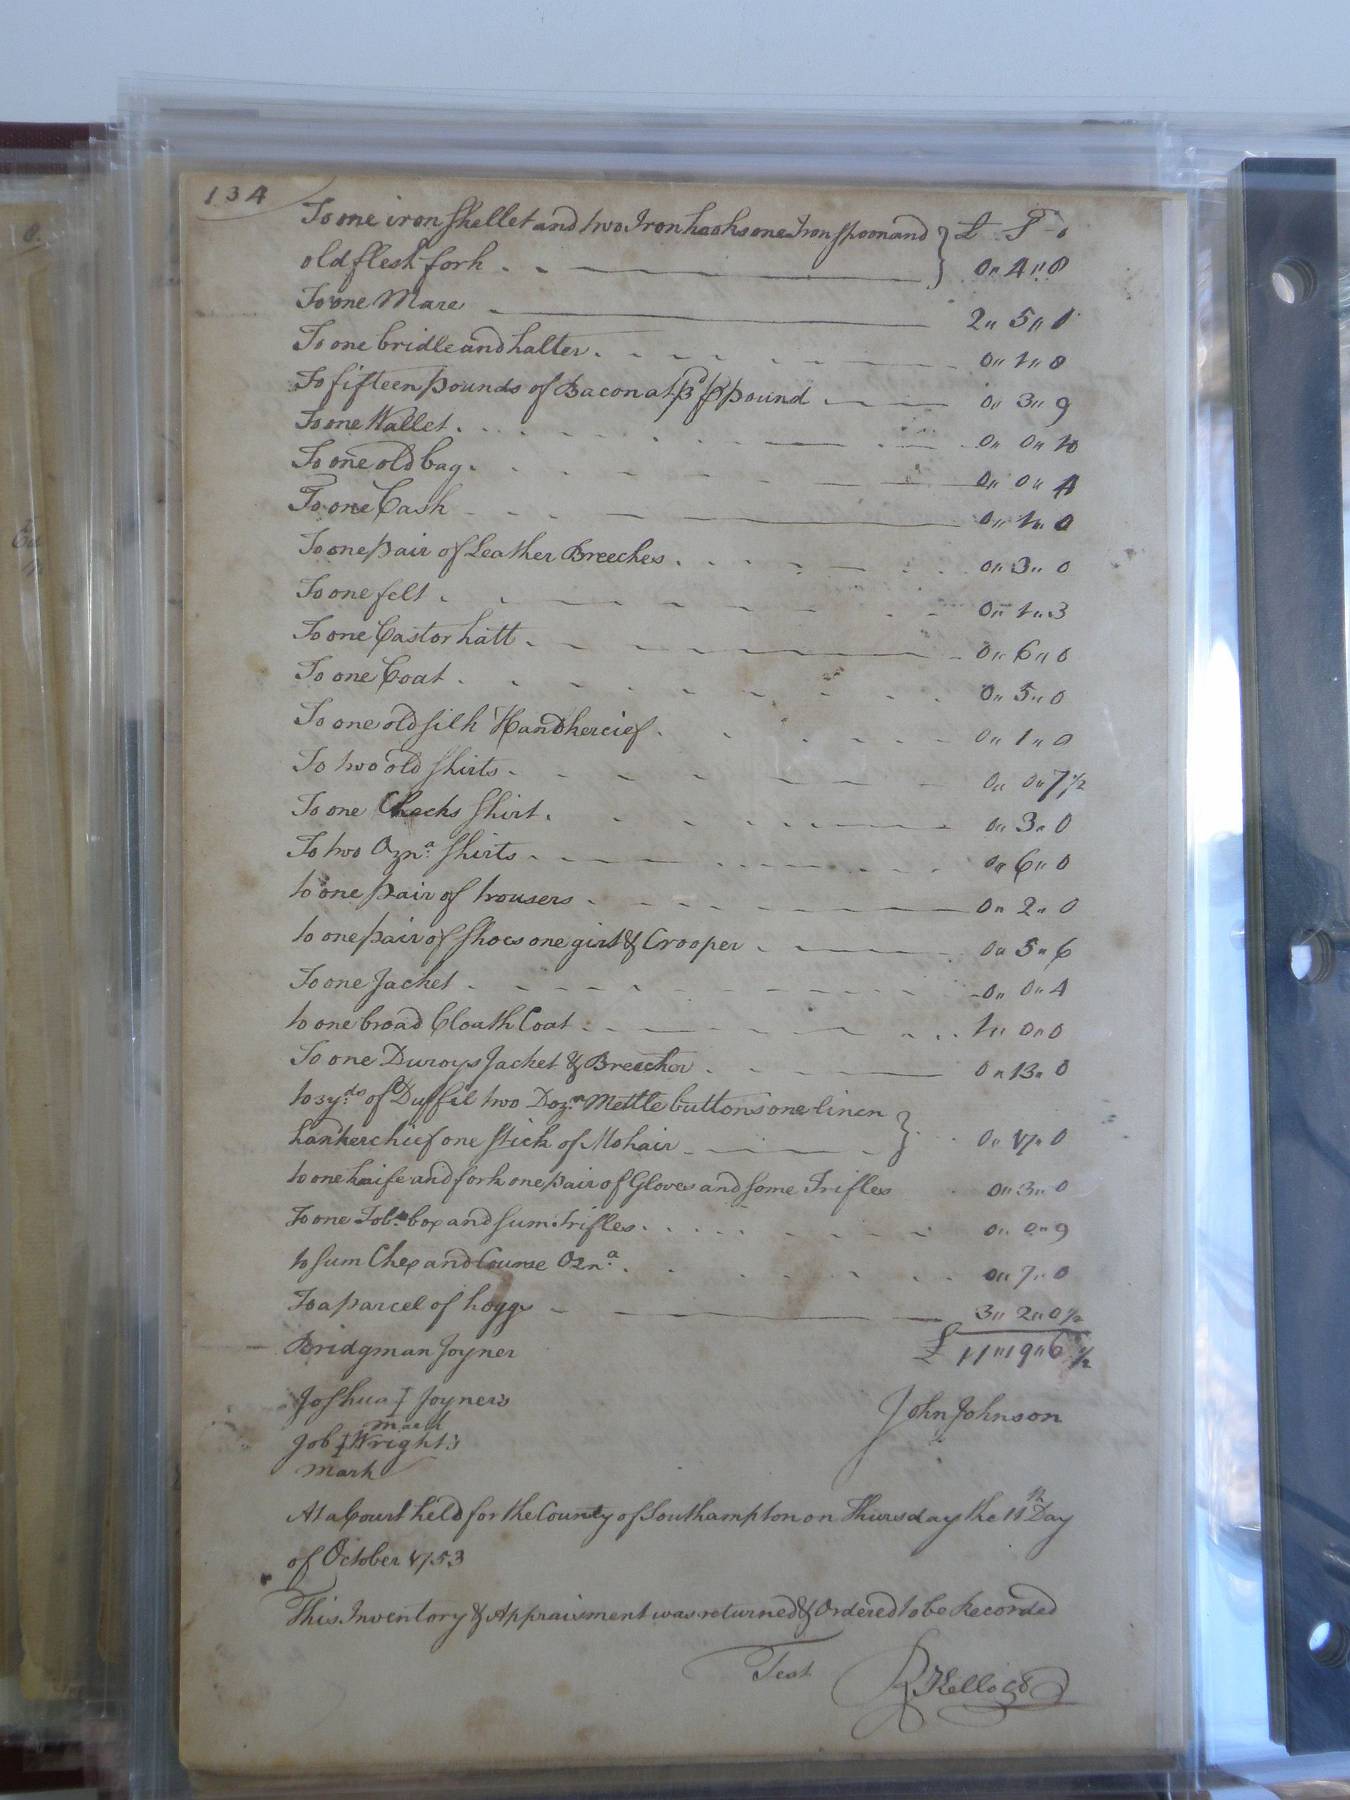 134
To one iron Skellet and two Iron hooks one Iron spoon and } £ S D
old flesh fork 0〃4〃8
To one Mare 2〃5〃0
To one bridle and halter 0〃1〃8
To fifteen pounds of Bacon at 3d p pound 0〃3〃9
To one Wallet 0〃0〃10
To one old bag 0〃0〃4
To one Cask 0〃1〃0
To one pair of Leather Breeches 0〃3〃0
To one felt 0〃1〃3
To one Castor hatt 0〃6〃0
To one Coat 0〃5〃0
To one old silk Handkercief 0〃1〃0
To two old shirts 0〃0〃7½
To one Checks Shirt 0〃3〃0
To two Ozna. shirts 0〃6〃0
to one pair of trousers 0〃2〃0
to one pair of shoes one girt & Crooper 0〃5〃6
To one Jacket 0〃0〃4
to one broad Cloath Coat 1〃0〃0
To one Duroys Jacket & Breeches 0〃13〃0
to 3 yds of Duffil two Dozn Mettle buttons one linen }
hankerchief one stick of Mohair 0〃17〃0
to one knife and fork one pair of Gloves and some Trifles 0〃3〃0
To one Tobo. box and sum trifles 0〃0〃9
to sum Chex and Course Ozna. 0〃7〃0
To a parcel of hoggs 3〃2〃0½
Bridgman Joyner £11〃19〃6½
Joshua I Joyner's John Johnson
mark
Job I Wright's
mark
At a Court held for the County of Southampton on Thursday the 11th Day
of October 1753
This Inventory & Appraisment was returned & Ordered to be Recorded
Test R Kello CC